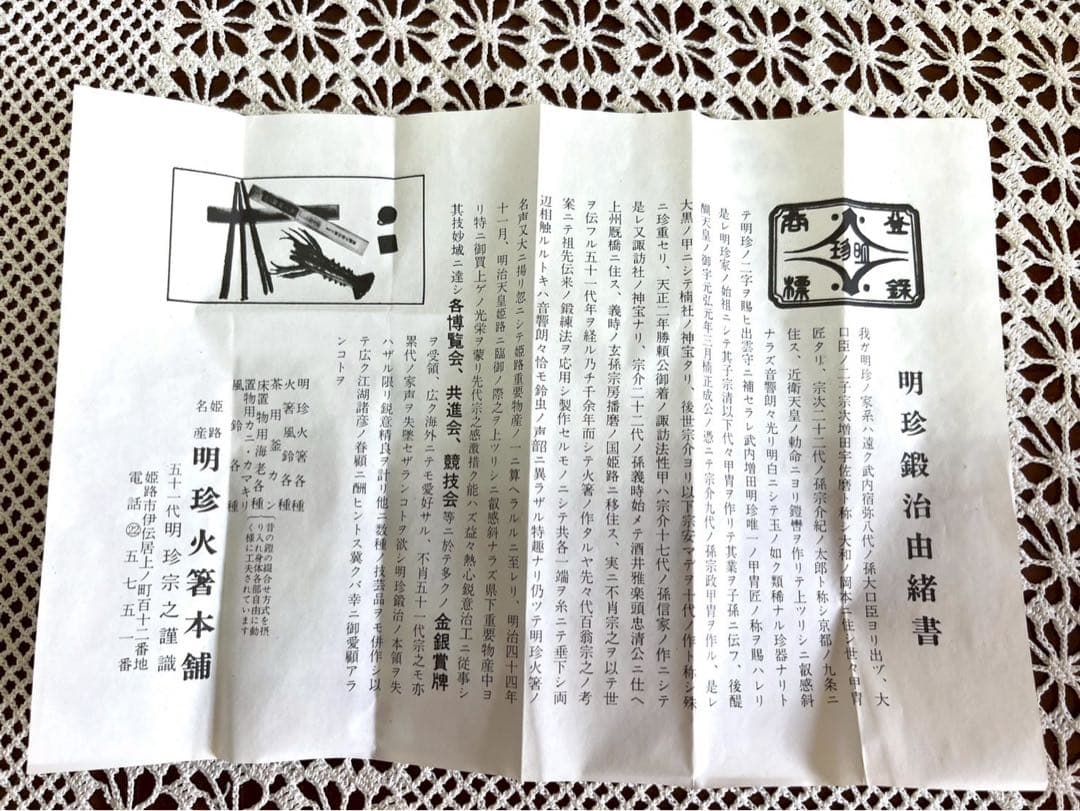 登録
商標
明珍
明珍鍛治由緒書
我ガ明珍ノ家系ハ遠ク武内宿弥八代ノ孫大口臣ヨリ出ヅ、大
口臣ノ二子宗次増田宇佐麿ト称シ大和ノ岡本ニ住シ世々甲冑
匠タリ、宗次二十二代ノ孫宗介紀ノ太郎ト称シ京都ノ九条ニ
住ス、近衛天皇ノ勅命ニヨリ鎧轡ヲ作リテ上ツリシニ叡感斜
ナラズ音響朗々光リ明白ニシテ玉ノ如ク類稀ナル珍器ナリト
テ明珍ノ二字ヲ賜ヒ出雲守ニ補セラレ武内増田明珍唯一ノ甲冑匠ノ称ヲ賜ハレリ
是レ明珍家ノ始祖ニシテ其子宗清以下代々甲冑ヲ作リテ其業ヲ子孫ニ伝フ、後醍
醐天皇ノ御宇元弘元年三月楠正成公ノ憑ニテ宗介九代ノ孫宗政甲冑ヲ作ル、是レ
大黒ノ甲ニシテ楠社ノ神宝タリ、後世宗介ヨリ以下宗安マデヲ十代ノ作ト称シ殊
ニ珍重セリ、天正二年勝頼公御着ノ諏訪法性甲ハ宗介十七代ノ孫信家ノ作ニシテ
是レ又諏訪社ノ神宝ナリ、宗介二十二代ノ孫義時始メテ酒井雅楽頭忠清公ニ仕ヘ
上州厩橋ニ住ス、義時ノ玄孫宗房播磨ノ国姫路ニ移住ス、実ニ不肖宗之ヲ以テ世
ヲ伝フル五十一代年ヲ経ル乃チ千余年而シテ火箸ノ作タルヤ先々代百翁宗之ノ考
案ニテ祖先伝来ノ鍛練法ヲ応用シ製作セルモノニシテ共各一端ヲ糸ニテ垂下シ両
辺相触ルルトキハ音響朗々恰モ鈴虫ノ声韶ニ異ラザル特趣ナリ仍ツテ明珍火箸ノ
名声又大ニ揚リ忽ニシテ姫路重要物産ノ一ニ算ヘラルルニ至レリ、明治四十四年
十一月、明治天皇姫路ニ臨御ノ際之ヲ上ツリシニ叡感斜ナラズ県下重要物産中ヨ
リ特ニ御買上ゲノ光栄ヲ蒙リ先代宗之感激措ク能ハズ益々熱心鋭意治工ニ従事シ
其技妙域ニ達シ各博覧会、共進会、競技会等ニ於テ多クノ金銀賞牌
ヲ受領、広ク海外ニテモ愛好サル、不肖五十一代宗之モ亦
累代ノ家声ヲ失墜セザランコトヲ欲シ明珍鍛治ノ本領ヲ失
ハザル限リ鋭意精良ヲ計リ他ニ数種ノ技芸品ヲモ併作シ以
テ広ク江湖諸彦ノ眷顧ニ酬ヒントス冀クバ幸ニ御愛顧アラ
ンコトヲ
明珍火箸各種
火箸風鈴各種
茶用釜カン
床置物用海老各種
置物用カニ・カマキリ
風鈴各種
昔の鎧の綴合せ方式を摂
り入れ身体各部自由に動
く様に工夫されています
姫路名産 明珍火箸本舗
五十一代明珍宗之謹識
姫路市伊伝居上ノ町百十二番地
電話㉒五七五一番